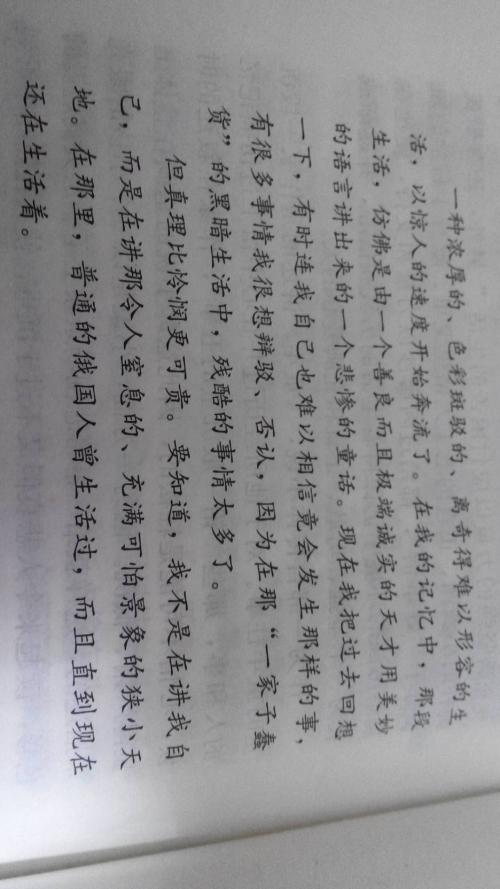 一种浓厚的、色彩斑驳的、离奇得难以形容的生
活，以惊人的速度开始奔流了。在我的记忆中，那段
生活，仿佛是由一个善良而且极端诚实的天才用美妙
的语言讲出来的一个悲惨的童话。现在我把过去回想
一下，有时连我自己也难以相信竟会发生那样的事，
有很多事情我很想辩驳、否认，因为在那“一家子蠢
货”的黑暗生活中，残酷的事情太多了。
但真理比怜悯更可贵。要知道，我不是在讲我自
己，而是在讲那令人窒息的、充满可怕景象的狭小天
地。在那里，普通的俄国人曾生活过，而且直到现在
还在生活着。